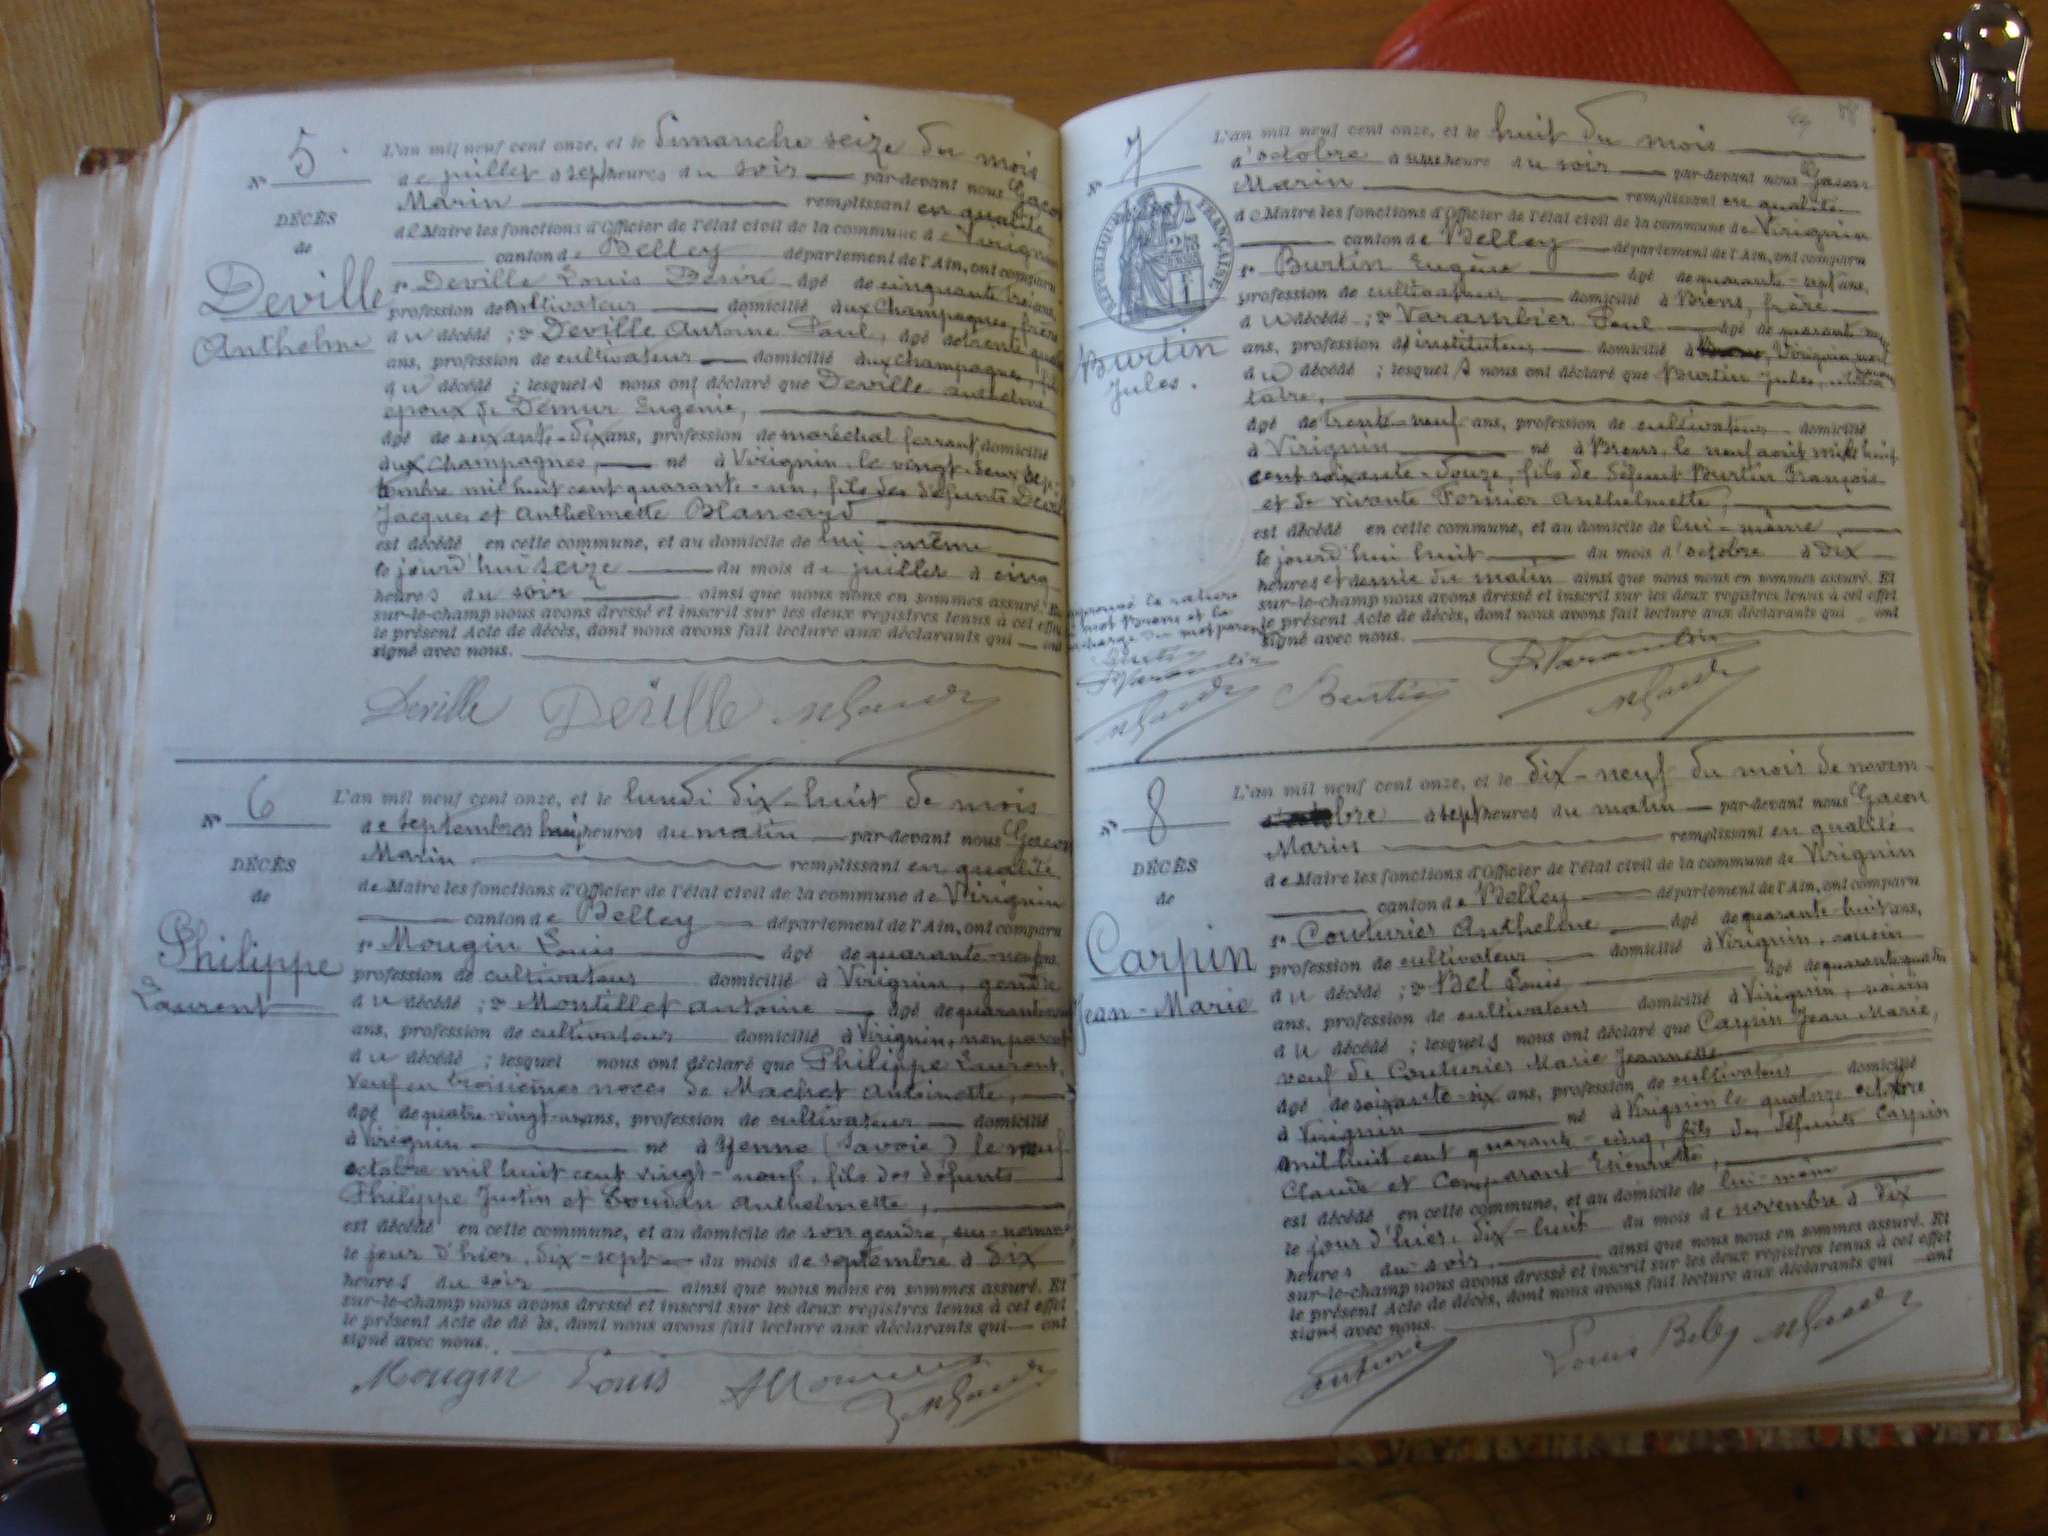 5
N°
DÉCÈS
de
Deville
Anthelme
L'an mil neuf cent onze, et le dimanche seize du mois
de juillet à sept heures du soir par-devant nous Gacon
Marin remplissant en qualité
de Maire les fonctions d'Officier de l'état civil de la commune de Virignin
canton de Belley département de l'Ain, ont comparu
sr Deville Louis Désiré âgé de cinquante trois ans,
profession de cultivateur domicilié aux Champagnes, frère
du décédé ; sr Deville Antoine Paul, âgé de trente quatre
ans, profession de cultivateur domicilié aux champagnes, fils
du décédé ; lesquels nous ont déclaré que Deville anthelme
époux de Démur Eugénie,
âgé de soixante-dix ans, profession de maréchal ferrant, domicilié
aux champagnes, né à Virignin, le vingt-deux sep-
tembre mil huit cent quarante-un, fils des défunts Deville
Jacques et Anthelmette Blancard
est décédé en cette commune, et au domicile de lui-même
le jourd'hui seize du mois de juillet à cinq
heures du soir ainsi que nous nous en sommes assuré. Et
sur-le-champ nous avons dressé et inscrit sur les deux registres tenus à cet effet
le présent Acte de décès, dont nous avons fait lecture aux déclarants qui ont
signé avec nous.
Deville Deville MGacon
6
N°
DÉCÈS
de
Philippe
Laurent
L'an mil neuf cent onze, et le lundi dix-huit de mois
de septembre à huit heures du matin par-devant nous Gacon
Marin remplissant en qualité
de Maire les fonctions d'Officier de l'état civil de la commune de Virignin
canton de Belley département de l'Ain, ont comparu
sr Mougin Louis âgé de quarante-neuf ans
profession de cultivateur domicilié à Virignin, gendre
du décédé ; sr Montillet antoine âgé de quarante
ans, profession de cultivateur domicilié à Virignin, non parent
du décédé ; lesquel nous ont déclaré que Philippe Laurent,
veuf en troisièmes noces de Machet Antoinette,
âgé de quatre-vingt-un ans, profession de cultivateur domicilié
à Virignin né à Yenne (Savoie) le neuf
octobre mil huit cent vingt-neuf, fils des défunts
Philippe Justin et Anthelmette,
est décédé en cette commune, et au domicile de son gendre, sus-nommé
le jour d'hier, dix-sept du mois de septembre à dix
heures du soir ainsi que nous nous en sommes assuré. Et
sur-le-champ nous avons dressé et inscrit sur les deux registres tenus à cet effet
le présent Acte de décès, dont nous avons fait lecture aux déclarants qui ont
signé avec nous.
Mougin Louis MGacon
7
N°
RÉPUBLIQUE FRANÇAISE
Burtin
Jules.
L'an mil neuf cent onze, et le huit du mois
d'octobre à une heure du soir par-devant nous Gacon
Marin remplissant en qualité
de Maire les fonctions d'Officier de l'état civil de la commune de Virignin
canton de Belley département de l'Ain, ont comparu
sr Burtin Eugène âgé de quarante-sept ans,
profession de cultivateur domicilié à Brens, frère
du décédé ; sr Varambier Paul âgé de quarante
ans, profession d'instituteur domicilié à Virignin, non
du décédé ; lesquels nous ont déclaré que Burtin Jules, céliba-
taire,
âgé de trente-neuf ans, profession de cultivateur domicilié
à Virignin né à Brens, le neuf août mil huit
cent soixante-douze, fils de défunt Burtin François
et de vivante Fornier Anthelmette,
est décédé en cette commune, et au domicile de lui-même,
le jourd'hui huit du mois d'octobre à dix
heures et demie du matin ainsi que nous nous en sommes assuré. Et
sur-le-champ nous avons dressé et inscrit sur les deux registres tenus à cet effet
le présent Acte de décès, dont nous avons fait lecture aux déclarants qui ont
signé avec nous.
approuvé la rature
mot Brens et la
surcharge du mot parent
Burtin
P. Varambier
MGacon
Burtin
P. Varambier
MGacon
8
N°
DÉCÈS
de
Carpin
Jean-Marie
L'an mil neuf cent onze, et le dix-neuf du mois de novem-
bre à sept heures du matin par-devant nous Gacon
Marin remplissant en qualité
de Maire les fonctions d'Officier de l'état civil de la commune de Virignin
canton de Belley département de l'Ain, ont comparu
sr Couturier Anthelme âgé de quarante-huit ans,
profession de cultivateur domicilié à Virignin, cousin
du décédé ; sr Bel Louis âgé de quarante quatre
ans, profession de cultivateur domicilié à Virignin, voisin
du décédé ; lesquels nous ont déclaré que Carpin Jean Marie,
veuf de Couturier Marie Jeannette
âgé de soixante-six ans, profession de cultivateur domicilié
à Virignin né à Virignin le quatorze octobre
mil huit cent quarante-cinq, fils des défunts Carpin
Claude et Comparant Etiennette,
est décédé en cette commune, et au domicile de lui-même
le jour d'hier, dix-huit du mois de novembre à dix
heures du soir, ainsi que nous nous en sommes assuré. Et
sur-le-champ nous avons dressé et inscrit sur les deux registres tenus à cet effet
le présent Acte de décès, dont nous avons fait lecture aux déclarants qui ont
signé avec nous.
Couturier Louis Bel MGacon